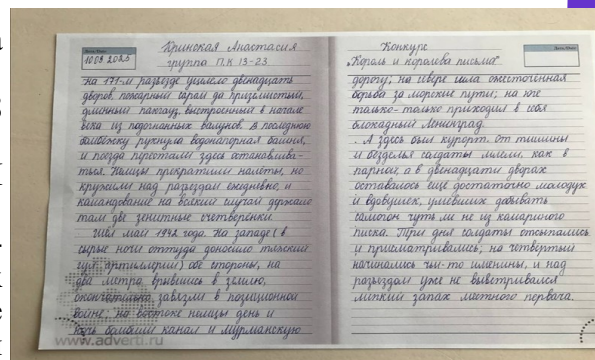 10.03.2025
Кринская Анастасия
группа П.К 13-23
На 171-м разъезде уцелело двенадцать
дворов, пожарный сарай да приземистый,
длинный пакгауз, выстроенный в начале
века из подогнанных валунов. В последнюю
бомбёжку рухнула водонапорная башня,
и поезда перестали здесь останавлива-
ться. Немцы прекратили налёты, но
кружили над разъездом ежедневно, и
командование на всякий случай держало
там две зенитные счетверёнки.
Шёл май 1942 года. На западе (в
сырые ночи оттуда доносило тяжкий
гул артиллерии) обе стороны, на
два метра врывшись в землю,
окончательно завязли в позиционной
войне; на востоке немцы день и
ночь бомбили канал и Мурманскую
www.adverti.ru
Конкурс
"Король и королева письма"
дорогу; на севере шла ожесточённая
борьба за морские пути; на юге
только-только приходил в себя
блокадный Ленинград.
А здесь был курорт. От тишины
и безделья солдаты млели, как в
парной, а в двенадцати дворах
оставалось ещё достаточно молодух
и вдовушек, умевших добывать
самогон чуть ли не из комариного
писка. Три дня солдаты отсыпались
и присматривались; на четвёртый
начинались чьи-то именины, и над
разъездом уже не выветривался
липкий запах местного первача.